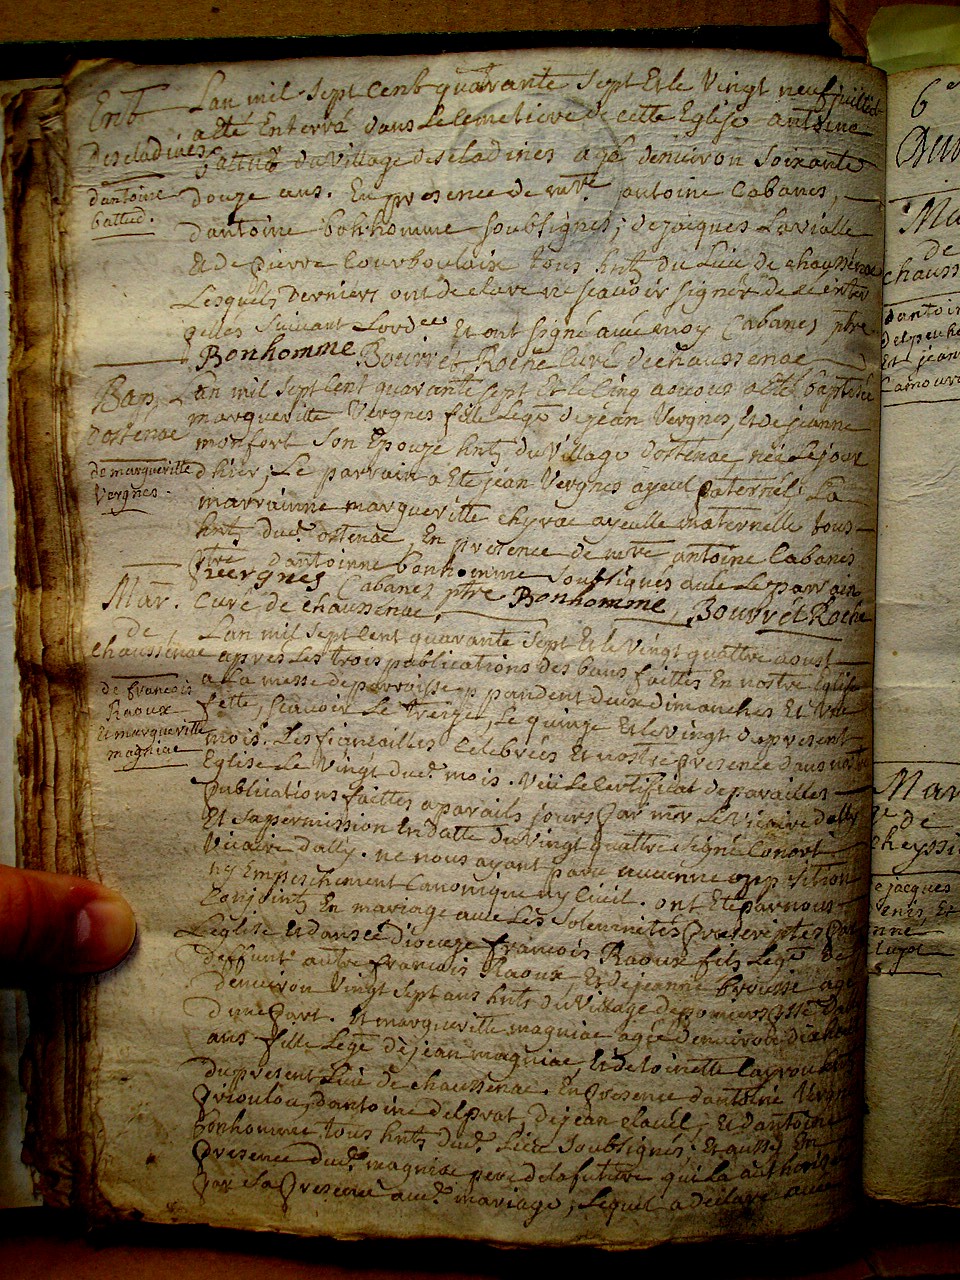 Ent
Lan mil sept Cent quarante sept Et le Vingt neuf juillet
a Eté Enterré dans Le Cemetiere de cette Eglise antoine
Descladines
battud du Village descladines agé denuiron Soixante
dantoine
battud.
douze ans. En presence de mre antoine Cabanes,
dantoine bonhomme soubsignés, de jaques Lavialle
Et de pierre Courboulaix tous hnts du Lieu de chaussenac
Lesquels derniers ont declaré ne scavoir signer de ce enter
pelles Suivant Lordce Et ont signé avec moy Cabanes ptre
Bonhomme Bouvret Roche Curé de chaussenac
Bap.
Lan mil Sept Cent quarante sept Et le Cinq aoust a Eté baptisée
dostenac
margueritte Vergnes fille Lege de jean Vergnes, Et de jeanne
monfort Son Epouze hnts du Village dostenac, née Le jour
de margueritte
Vergnes.
dhier; Le parrain a Eté jean Vergnes ayeul paternel La
marrainne margueritte chyrac ayeulle maternelle tous
hnts dud. ostenac, En presence de mre antoine Cabanes
ptre dantoinne bonhomme Soubsignés avec Le parrain
Vergnes Cabanes ptre Bonhomme, Bouvret Roche
Curé de chaussenac
Mar.
de
chaussenac
Lan mil Sept Cent quarante Sept Et le Vingt quattre aoust
apres Les trois publications des bans faittes En nostre Eglise
a La messe de parroisse pandent deux dimanches Et Une
de francois
Raoux
Et margueritte
magniac
fette, Scavoir Le treize, Le quinze Et le Vingt du present
mois. Les fiancailles Celebrées En nostre presence dans nostre
Eglise Le Vingt dud. mois. Veü Le Certificat de pareilles
publications faittes a pareils jours par mr Le Vicaire dally
Et Sa permission En datte du Vingt quattre signé Conort
Vicaire dally. ne nous ayant paru aucunne opposition
ny Empechement Canonique ny Civil. ont Eté par nous
Conjoints En mariage avec Les Solemnités prescriptes par
Leglise Et dans ce dioceze francois Raoux fils Lege de
deffunt autre francois Raoux, Et de jeanne brousse agé
denuiron Vingt sept ans hnts du Village de pomiers
dune part. Et margueritte magniac agée denuiron dix huit
ans fille Lege de jean magniac, Et de toinette Layrou
du present Lieu de chaussenac. En presence dantoine Vergn
Prioulou, dantoine delprat, de jean clavel, Et dantoine
bonhomme tous hnts dud. Lieu Soubsignés. Et aussy En
presence dud. magniac pere de la future qui La authorisée
par Sa presence aud. mariage, Lequel a declaré
6e
Mar
de
chauss
dantoin
delpeuh
Et jean
Lamour
Mar
de
cheyssi